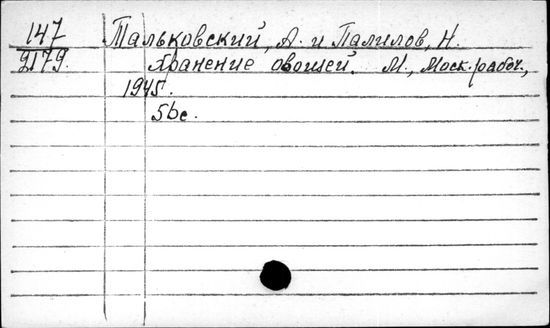 147 Тальковский, А. и Палилов, Н.
2179. Хранение овощей. М., Моск. рабоч.,
1945.
56с.